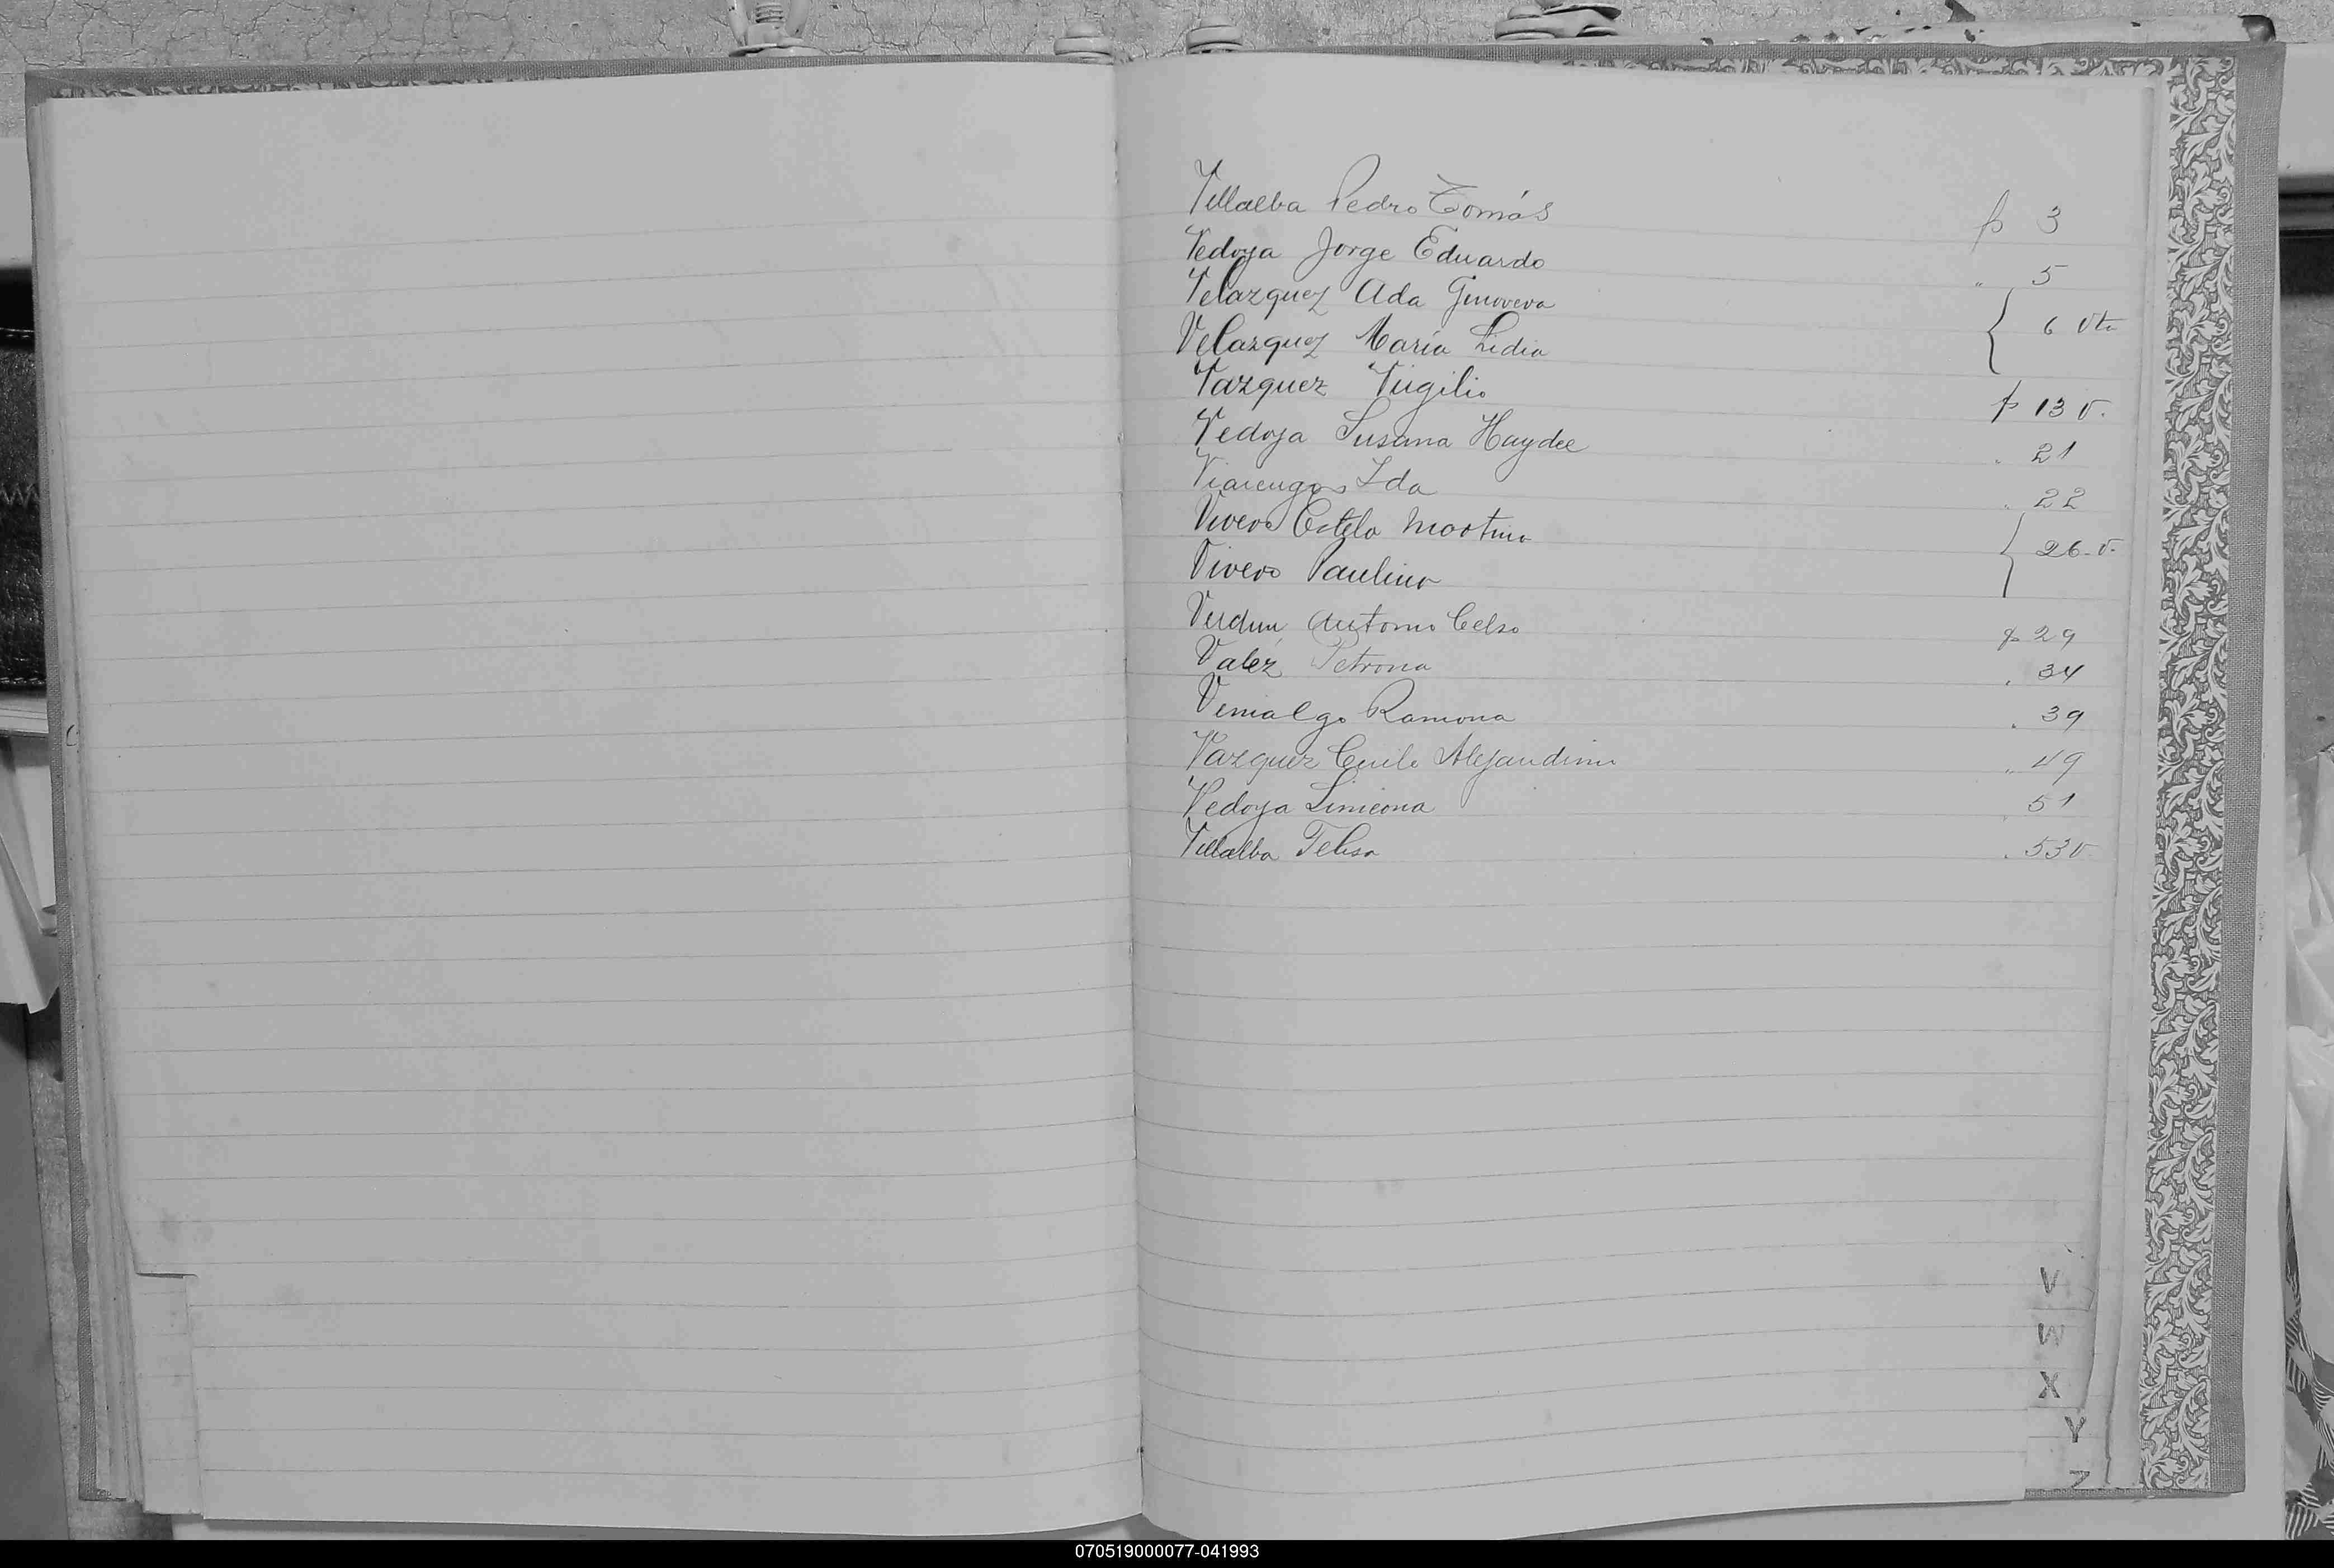 Villalba Pedro Tomás p 3
Vedoya Jorge Eduardo " 5
Velazquez Ada Genoveva
Velazquez María Lidia { 6 vta
Vazquez Virgilio p 13 v.
Vedoya Susana Haydee " 21
Viarengo Ida " 22
Vivero Estela Martina
Vivero Paulino { 26-v-
Verdun Antonio Celso p 29
Valez Petrona . 34
Venialgo Ramona . 39
Vazquez Alejandrino " 49
Vedoya Simeona . 51
Villalba Felisa . 53 v.
V
W
X
Y
Z
070519000077-041993